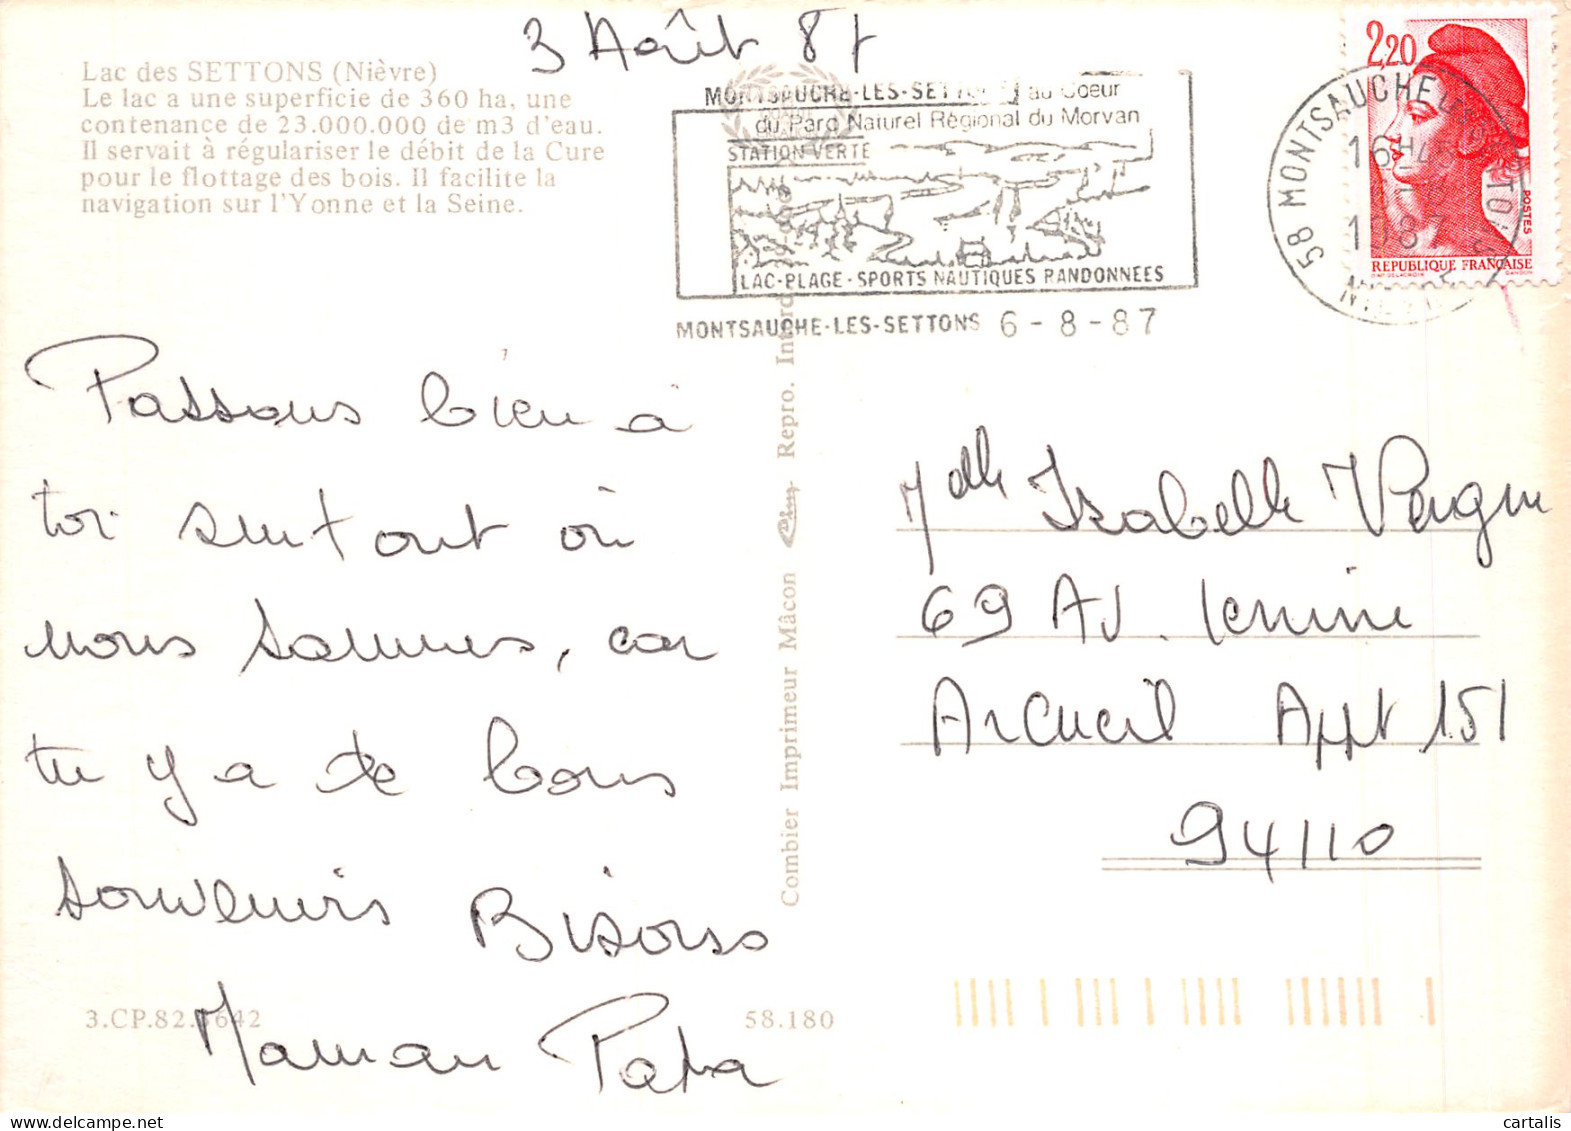 3 Août 87
Lac des SETTONS (Nièvre)
Le lac a une superficie de 360 ha, une
contenance de 23.000.000 de m3 d'eau.
Il servait à régulariser le débit de la Cure
pour le flottage des bois. Il facilite la
navigation sur l'Yonne et la Seine.
MONTSAUCHE-LES-SETTONS au Coeur
du Parc Naturel Régional du Morvan
STATION VERTE
LAC-PLAGE-SPORTS NAUTIQUES RANDONNEES
MONTSAUCHE-LES-SETTONS 6-8-87
58 MONTSAUCHE LES SETTONS
16H45
1987
2,20
POSTES
REPUBLIQUE FRANÇAISE
Passons bien à
toi surtout où
nous sommes, car
tu y a de bons
souvenirs Bisous
Maman Papa
Combier Imprimeur Mâcon
Repro.
Melle Isabelle
69 Av. Lénine
Arcueil Appt 151
94110
3.CP.82.
58.180
cartalis